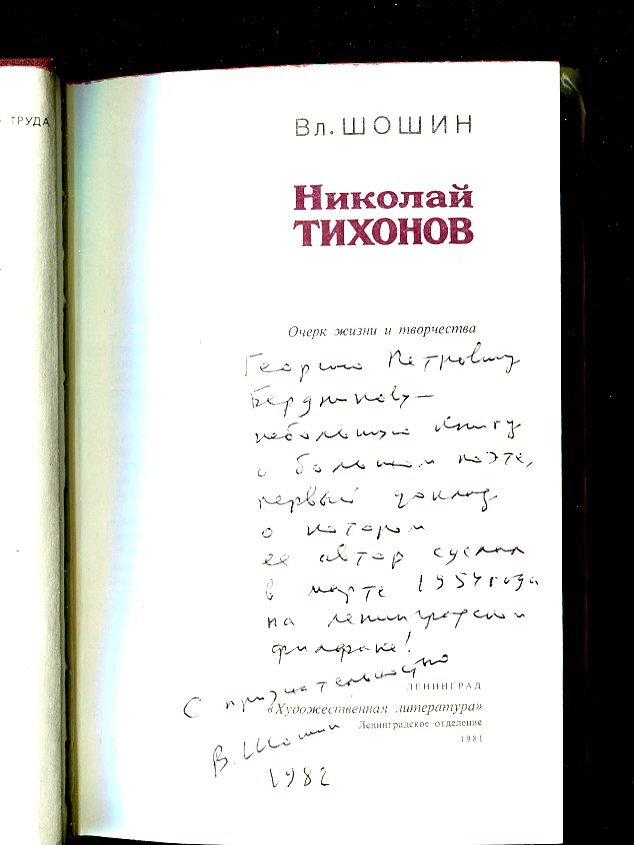 ТРУДА
Вл. ШОШИН
Николай
ТИХОНОВ
Очерк жизни и творчества
Георгию Петровичу
Бердникову –
небольшую книгу
о большом поэте,
первый доклад
о котором
ее автор сделал
в марте 1954 года
на ленинградском
филфаке!
С признательностью
ЛЕНИНГРАД
«Художественная литература»
Ленинградское отделение
1981
В. Шошин
1982